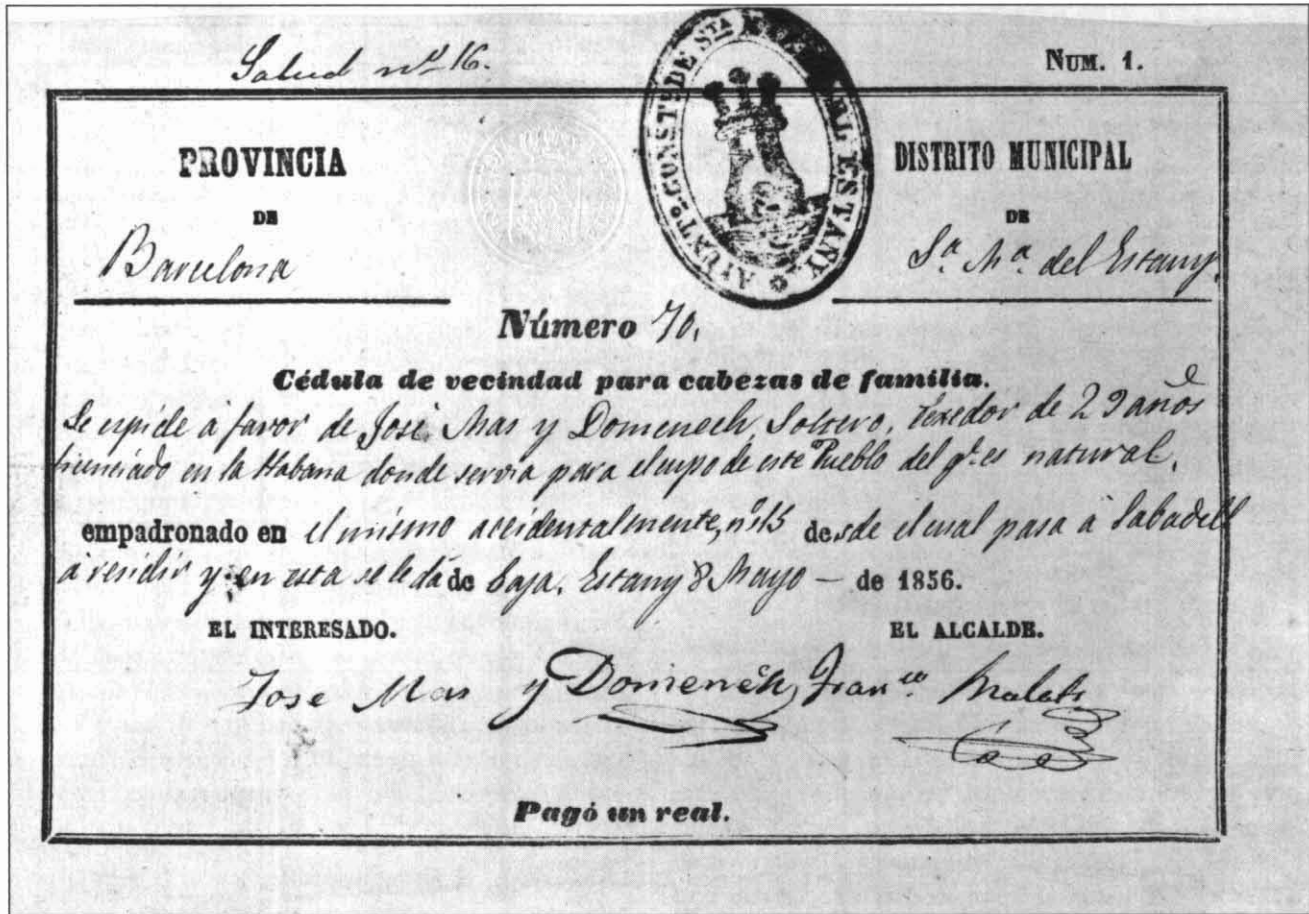 Salud nº 16.
NUM. 1.
AYUNTº CONSTL DE STA M DEL ESTANY
PROVINCIA
DE
Barcelona
DISTRITO MUNICIPAL
DE
Sª Mª del Estany.
Número 70.
Cédula de vecindad para cabezas de família.
Se espide a favor de José Mas y Domenech, Soltero, Texedor de 29 años
licenciado en la Habana donde servia para el cupo de este Pueblo del qº es natural,
empadronado en el mismo accidentalmente, nº 15 desde el cual pasa à Sabadell
a residir y en esta se le dá de baja. Estany 8 Mayo — de 1856.
EL INTERESADO.
EL ALCALDE.
Jose Mas y Domenech
Franco
Pagó un real.